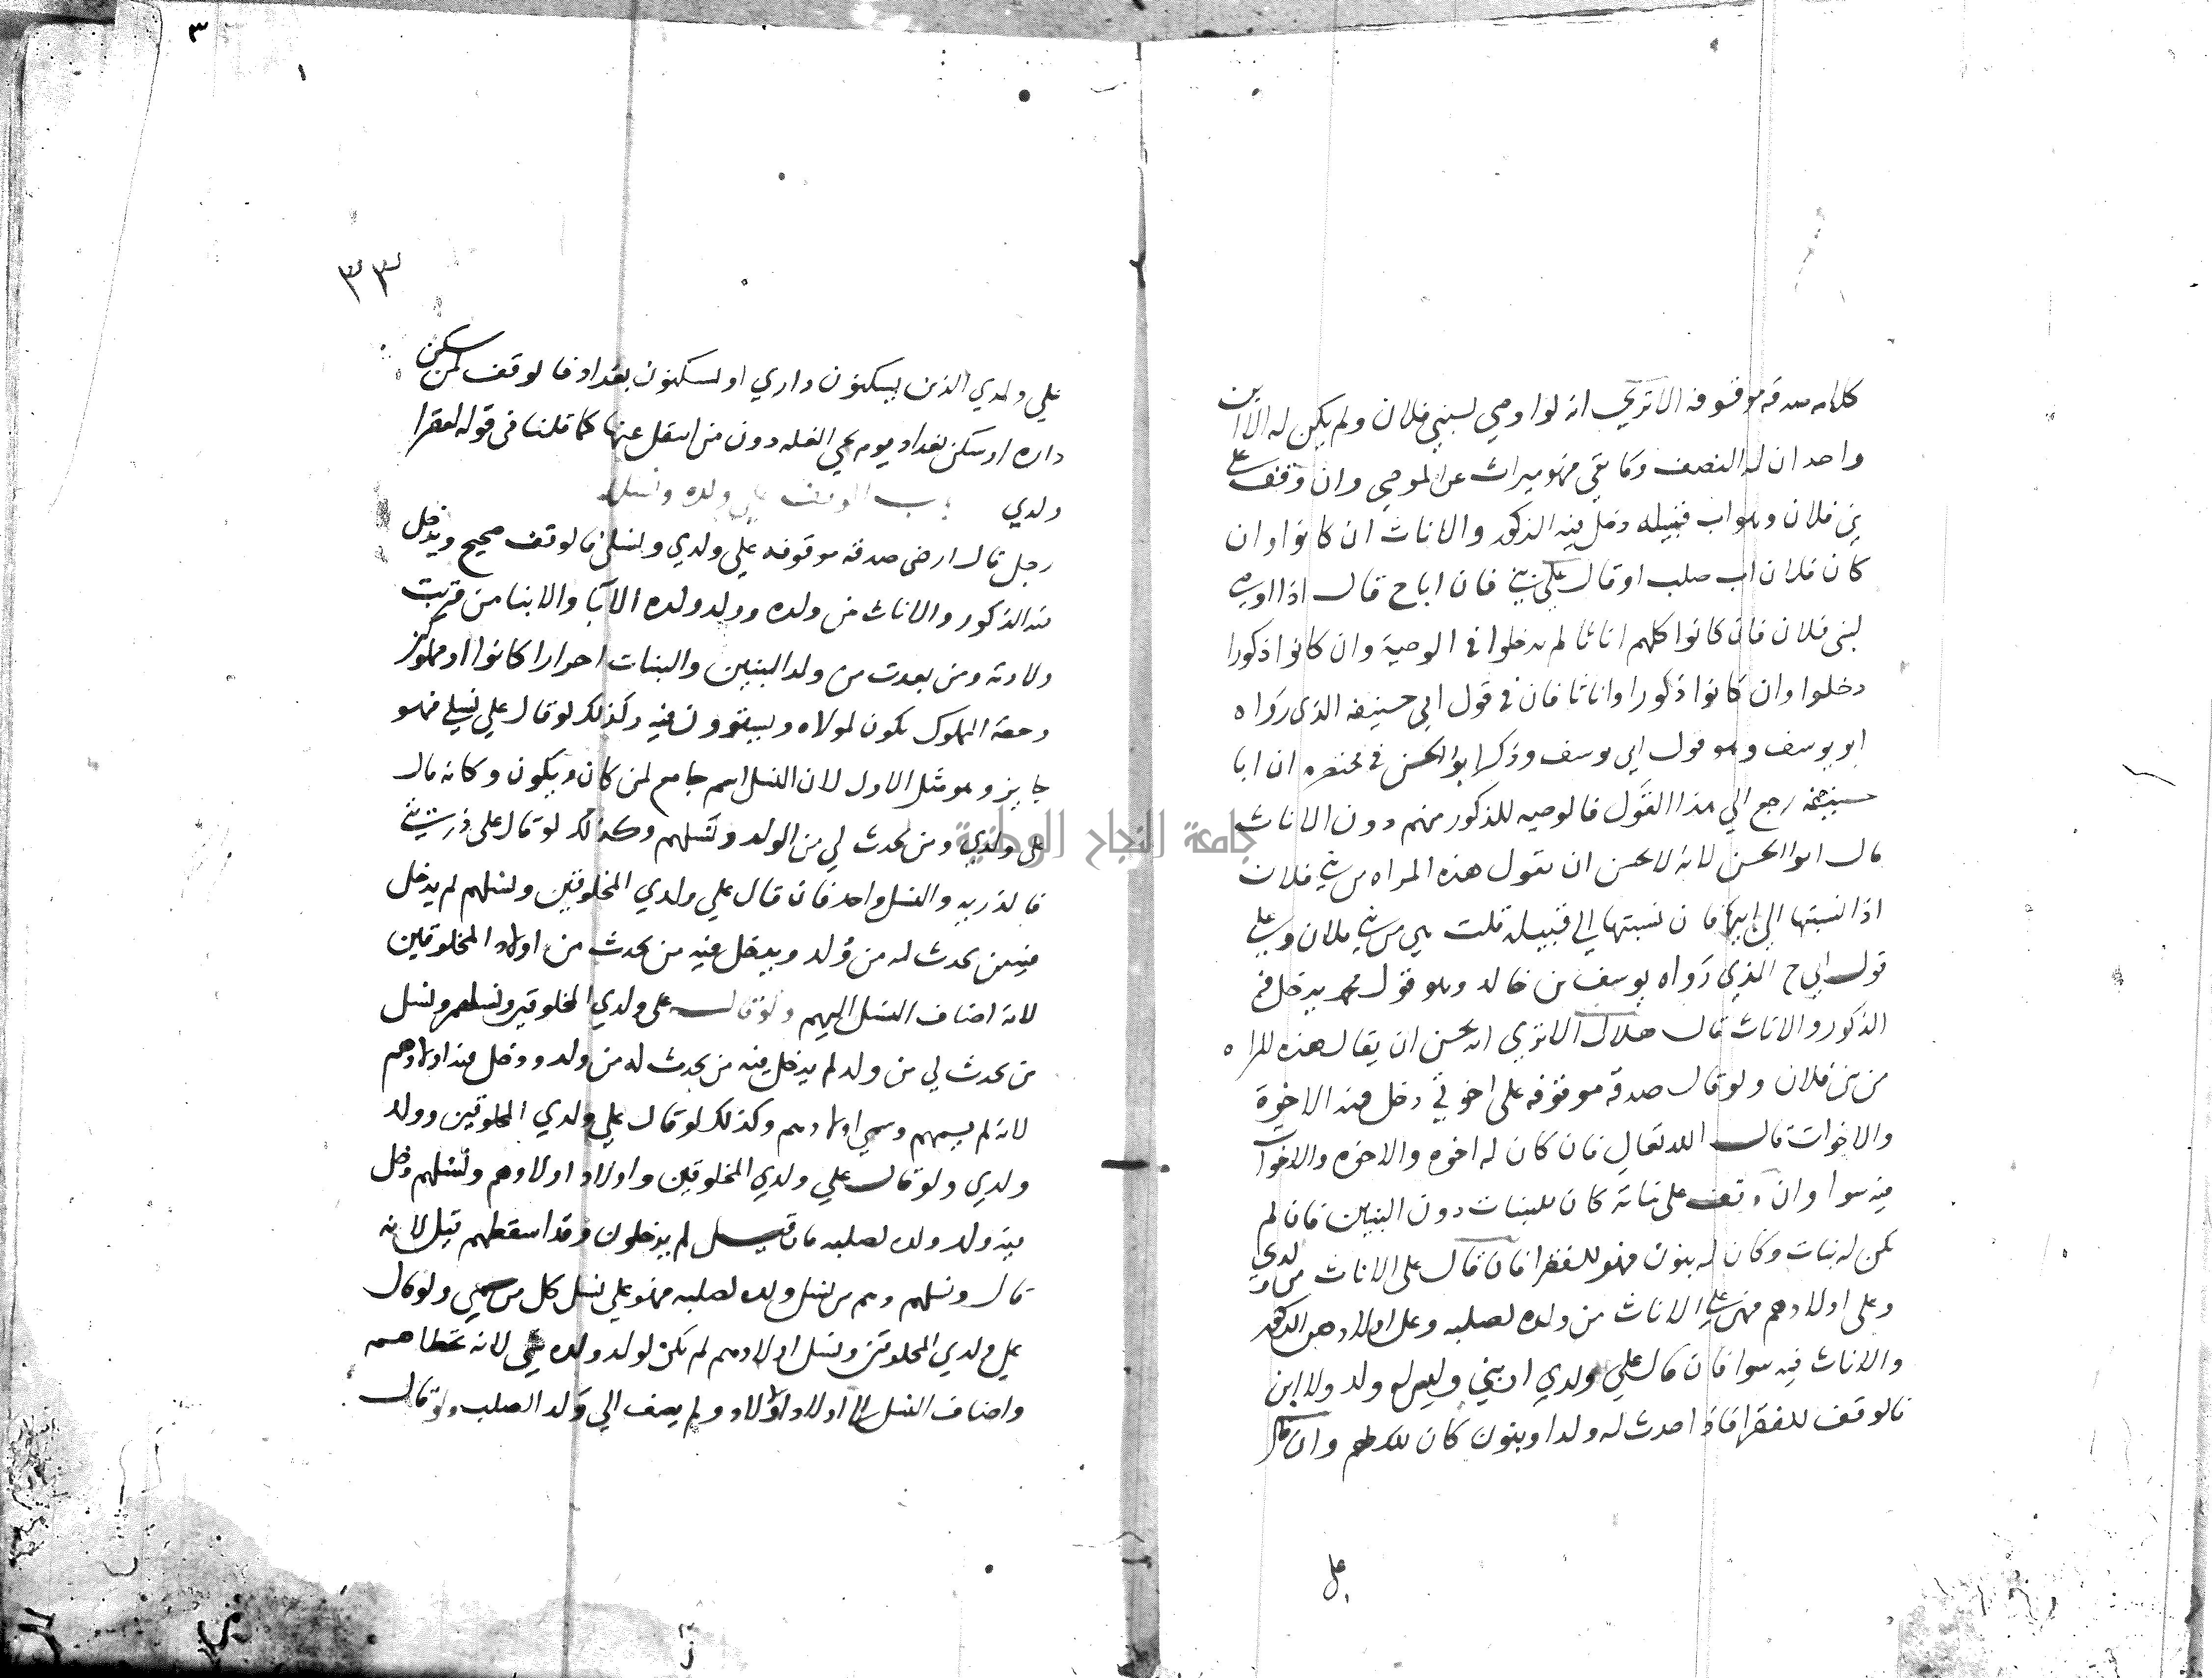 كلامه صدقة موقوفه الا تري انه لو اوصي لبني فلان ولم يكن له الا ابن
واحد ان له النصف وما بقي فهو ميراث عن الموصي وان وقف علي
بني فلان وهو اب قبيله دخل فيه الذكور والاناث ان كانوا وان
كان فلان اب صلب او قال علي بني فان ابا ح قال اذا اوصي
لبني فلان فان كانوا كلهم اناثا لم يدخلوا في الوصية وان كانوا ذكورا
دخلوا وان كانوا ذكورا واناثا فان في قول ابي حنيفه الذي رواه
ابو يوسف وهو قول ابي يوسف وذكر ابو الحسن في مختصره ان ابا
حنيفه رجع الي هذا القول فالوصيه للذكور منهم دون الاناث
قال ابو الحسن لانه لا يحسن ان تقول هذه المراه من بني فلان
اذا نسبتها الي ابيها فان نسبتها الي قبيله قلت هي من بني فلان وعلي
قول ابي ح الذي رواه يوسف بن خالد وهو قول محمد يدخل فيه
الذكور والاناث قال هلال الا تري انه يحسن ان يقال هذه المراه
من بني فلان ولو قال صدقة موقوفه على اخوتي دخل فيه الاخوة
والاخوات قال الله تعالي فان كان له اخوه والاخوه والاخوات
فيه سوا وان وقف على بناته كان للبنات دون البنين فان لم
يكن له بنات وكان له بنون فهو للفقرا فان قال على الاناث من ولدي
وعلى اولادهم فهي علي الاناث من ولده لصلبه وعلى اولادهن الذكور
والاناث فيه سوا فان قال علي ولدي او بني وليس له ولد ولا ابن
فالوقف للفقرا فاذا حدث له ولد او بنون كان لهم وان قال
علي
٣
١
٣٣
علي ولدي الذين يسكنون داري او يسكنون بغداد فالوقف لمن سكن
داره او سكن بغداد يوم يجي الغله دون من انتقل عنها كما قلنا في قوله لفقرا
ولدي باب الوقف علي ولده ونسله
رجل قال ارضي صدقة موقوفه علي ولدي ونسلي فالوقف صحيح ويدخل
فيه الذكور والاناث من ولده وولد ولده الابا والابنا من قربت
ولادته ومن بعدت من ولد البنين والبنات احرارا كانوا او مملوكين
وحصة المملوك يكون لمولاه ويستوون فيه وكذلك لو قال علي نسلي فهو
جايز وهو مثل الاول لان النسل اسم جامع لمن كان ويكون وكانه قال
على ولدي ومن يحدث لي من الولد ونسلهم وكذلك لو قال على ذريتي
فالذريه والنسل واحد فان قال علي ولدي المخلوقين ونسلهم لم يدخل
فيه من يحدث له من ولد ويدخل فيه من يحدث من اولاد المخلوقين
لانه اضاف النسل اليهم ولو قال على ولدي المخلوقين ونسلهم ونسل
من يحدث لي من ولد لم يدخل فيه من يحدث له من ولد ودخل فيه اولادهم
لانه لم يسمهم وسمي اولادهم وكذلك لو قال علي ولدي المخلوقين وولد
ولدي ولو قال علي ولدي المخلوقين واولاد اولادهم ونسلهم دخل
فيه ولد ولده لصلبه فان قيل لم يدخلون وقد اسقطهم قيل لانه
قال ونسلهم وهم من نسل ولده لصلبه فهو علي نسل كل من سمي ولو قال
علي ولدي المخلوقين ونسل اولادهم لم يكن لولد ولده شي لانه تخطاهم
واضاف النسل الي اولاد الاولاد ولم يضف الي ولد الصلب ولو قال
جامعة النجاح الوطنية